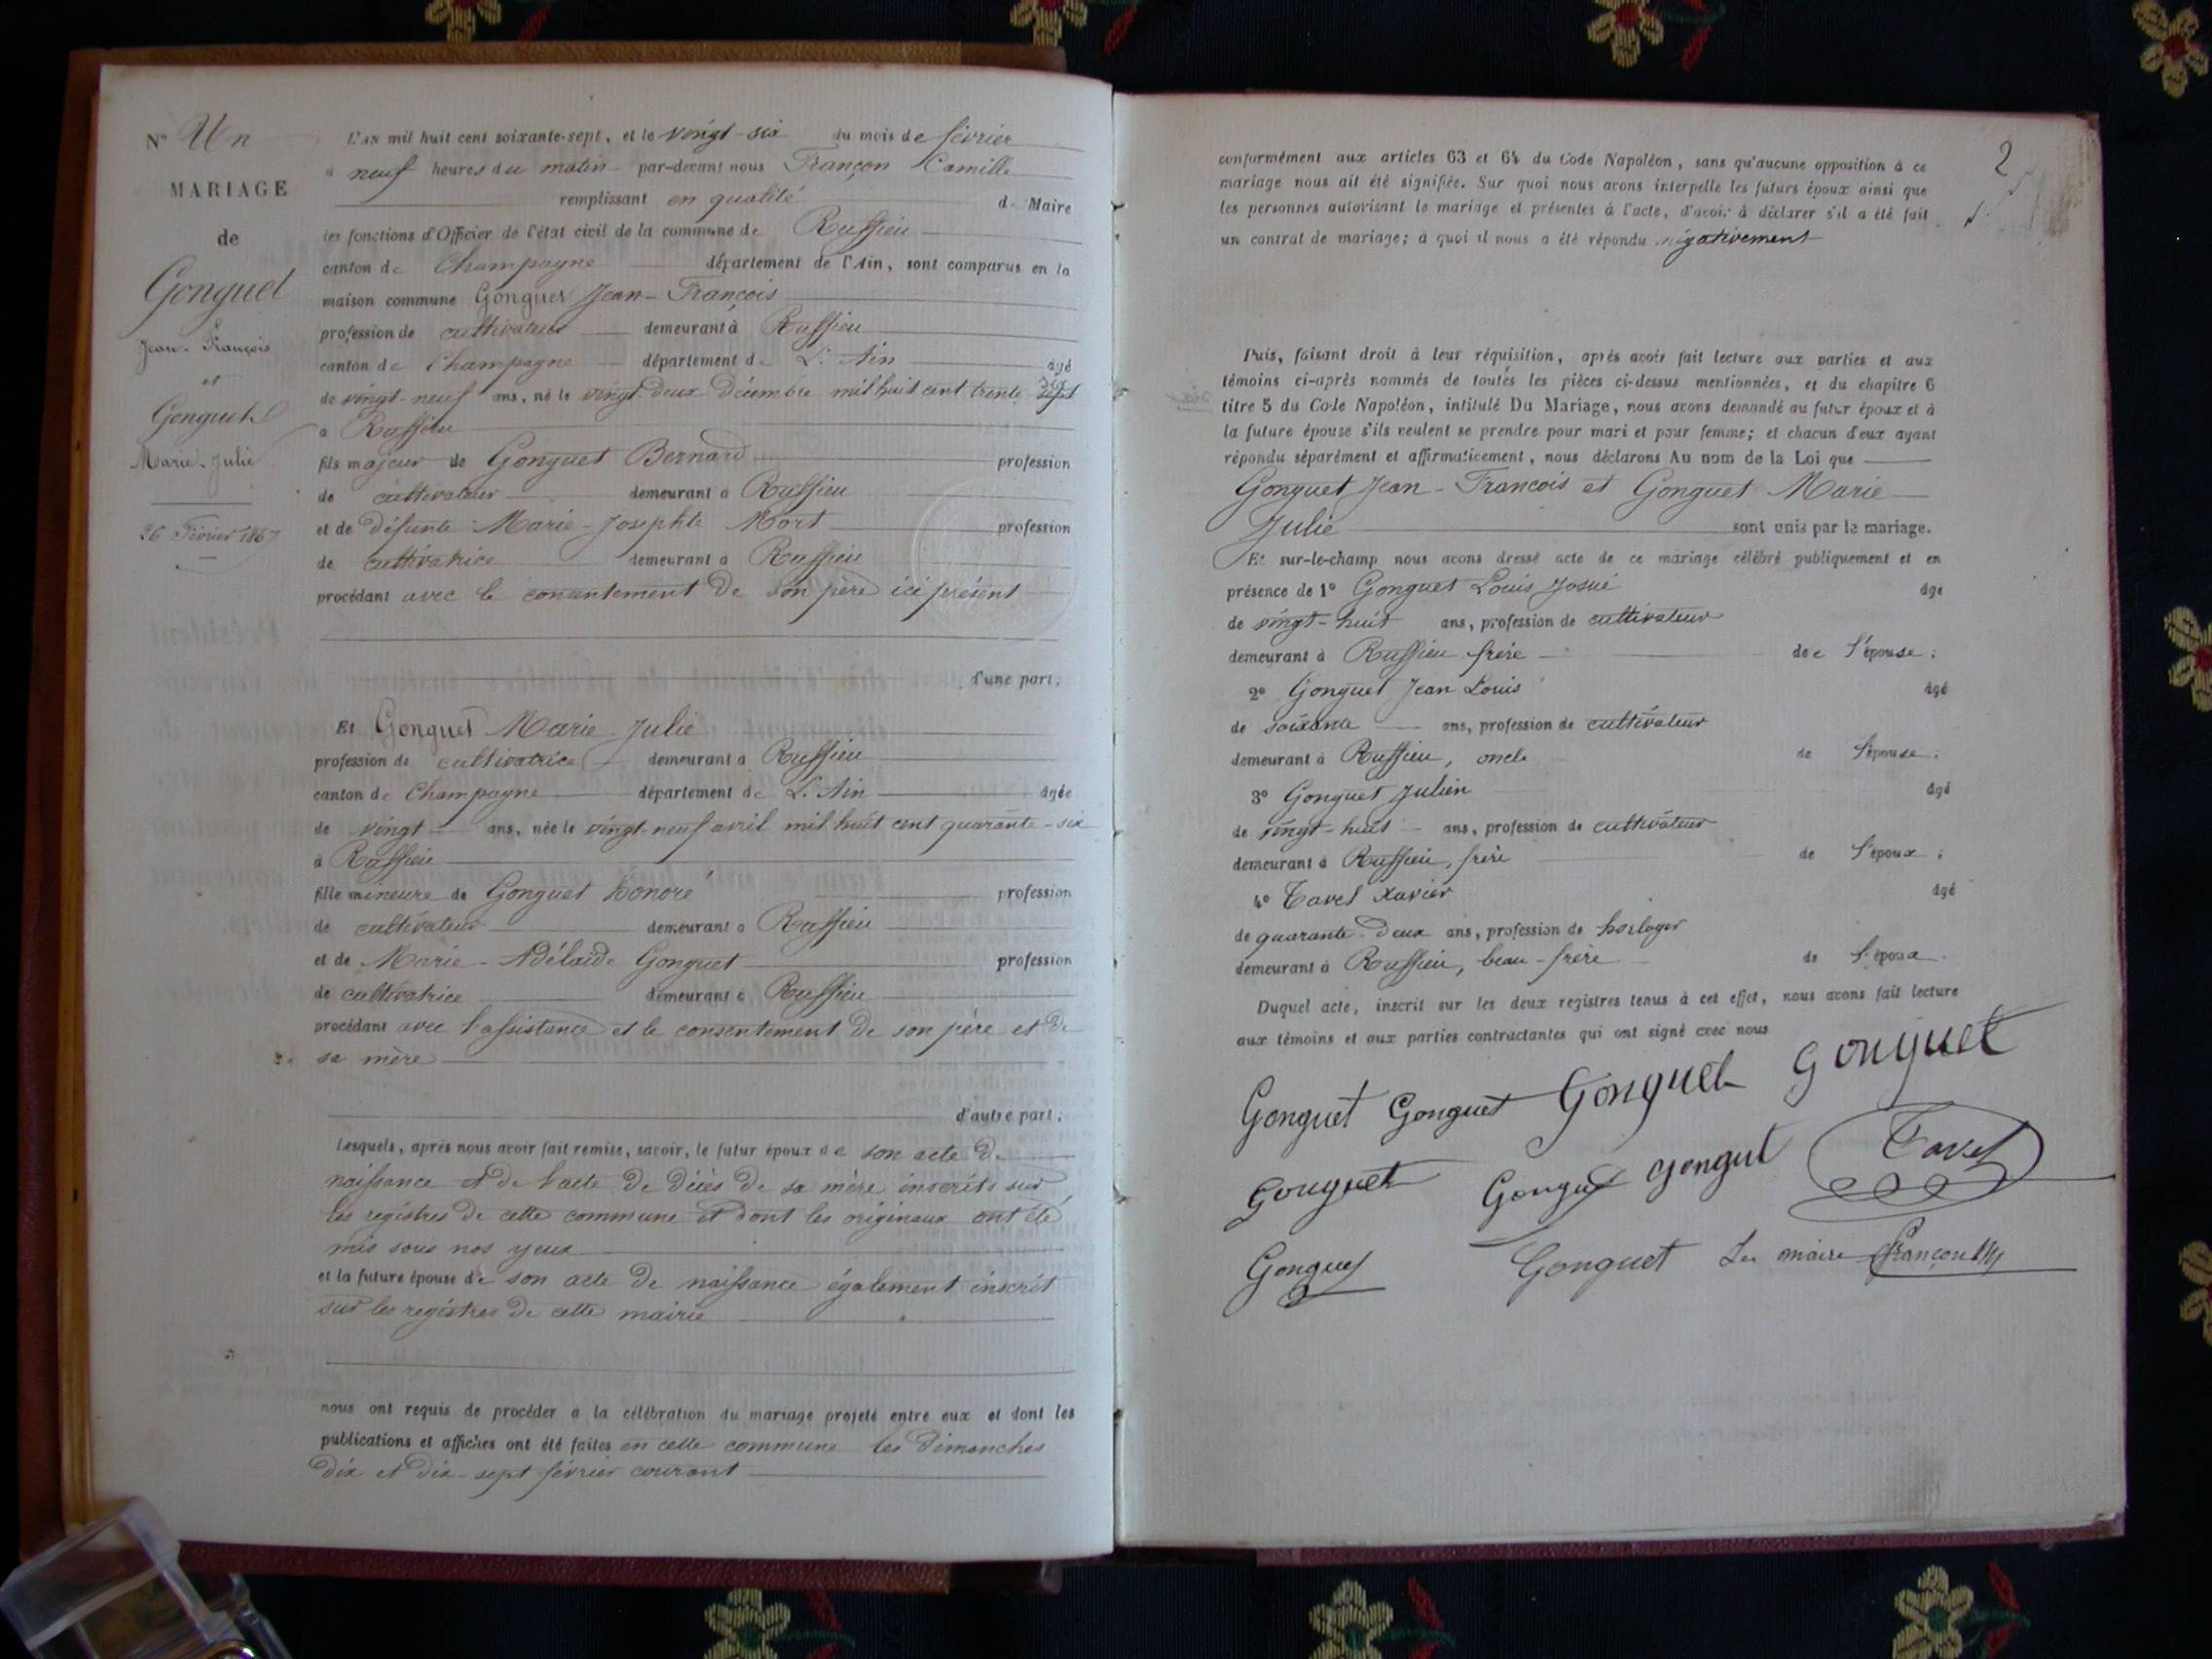 N° Un
MARIAGE
de
Gonguet
Jean-François
et
Gonguet
Marie-Julie
26 Février 1867
L'AN mil huit cent soixante-sept, et le vingt-six du mois de février
à neuf heures du matin par-devant nous Françon Camille
remplissant en qualité d Maire
les fonctions d'Officier de l'état civil de la commune de Ruffieu
canton de Champagne département de l'Ain, sont comparus en la
maison commune Gonguet Jean-François
profession de cultivateur demeurant à Ruffieu
canton de Champagne département de L'Ain agé
de vingt-neuf ans, né le vingt-deux Décembre mil huit cent trente sept
à Ruffieu
fils majeur de Gonguet Bernard profession
de cultivateur demeurant à Ruffieu
et de défunte Marie-Josephte Mort profession
de cultivatrice demeurant à Ruffieu
procédant avec le consentement de son père ici présent
d'une part.
Et Gonguet Marie-Julie
profession de cultivatrice demeurant à Ruffieu
canton de Champagne département de L'Ain agée
de vingt ans, née le vingt-neuf avril mil huit cent quarante-six
à Ruffieu
fille mineure de Gonguet honoré profession
de cultivateur demeurant à Ruffieu
et de Marie-Adélaide Gonguet profession
de cultivatrice demeurant à Ruffieu
procédant avec l'assistance et le consentement de son père et de
sa mère
d'autre part.
Lesquels, après nous avoir fait remise, savoir, le futur époux de son acte de
naissance et de l'acte de décès de sa mère inscrits sur
les registres de cette commune et dont les originaux ont été
mis sous nos yeux
et la future épouse de son acte de naissance également inscrit
sur les registres de cette mairie
nous ont requis de procéder à la célébration du mariage projeté entre eux et dont les
publications et affiches ont été faites en cette commune les dimanches
dix et dix-sept février courant
2
conformément aux articles 63 et 64 du Code Napoléon, sans qu'aucune opposition à ce
mariage nous ait été signifiée. Sur quoi nous avons interpellé les futurs époux ainsi que
les personnes autorisant le mariage et présentes à l'acte, d'avoir à déclarer s'il a été fait
un contrat de mariage; à quoi il nous a été répondu négativement
Puis, faisant droit à leur réquisition, après avoir fait lecture aux parties et aux
témoins ci-après nommés de toutes les pièces ci-dessus mentionnées, et du chapitre 6
titre 5 du Code Napoléon, intitulé Du Mariage, nous avons demandé au futur époux et à
la future épouse s'ils veulent se prendre pour mari et pour femme; et chacun d'eux ayant
répondu séparément et affirmativement, nous déclarons Au nom de la Loi que
Gonguet Jean-François et Gonguet Marie
Julie sont unis par le mariage.
Et sur-le-champ nous avons dressé acte de ce mariage célébré publiquement et en
présence de 1° Gonguet Louis Josué âgé
de vingt-huit ans, profession de cultivateur
demeurant à Ruffieu frère de l'épouse;
2° Gonguet Jean Louis âgé
de soixante ans, profession de cultivateur
demeurant à Ruffieu, oncle de l'épouse;
3° Gonguet Julien âgé
de vingt-huit ans, profession de cultivateur
demeurant à Ruffieu, frère de l'époux;
4° Tavel Xavier âgé
de quarante-deux ans, profession de horloger
demeurant à Ruffieu, beau-frère de
Duquel acte, inscrit sur les deux registres tenus à cet effet, nous avons fait lecture
aux témoins et aux parties contractantes qui ont signé avec nous
Gonguet Gonguet Gonguet Gonguet
Gonguet Gonguet Gonguet Tavel
Gonguet Gonguet Le maire Françon